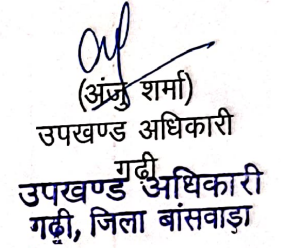 (अंजु शर्मा)
उपखण्ड अधिकारी
गढ़ी
उपखण्ड अधिकारी
गढ़ी, जिला बांसवाड़ा